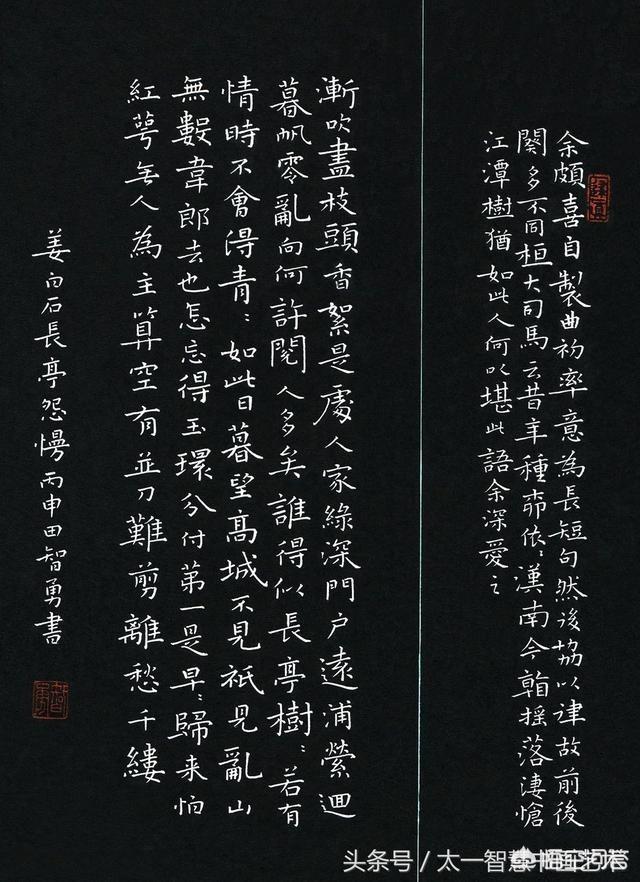 余頗喜自製曲初率意為長短句然後協以律故前後
闋多不同桓大司馬云昔年種柳依〻漢南今看搖落淒愴
江潭樹猶如此人何以堪此語余深愛之
漸吹盡枝頭香絮是處人家綠深門户遠浦縈迴
暮帆零亂向何許閱人多矣誰得似長亭樹〻若有
情時不會得青〻如此日暮望高城不見祇見亂山
無數韋郎去也怎忘得玉環分付第一是早〻歸来怕
紅萼無人為主算空有並刀難剪離愁千縷
姜白石長亭怨慢丙申田智勇書
头条号／太一智慧书画艺术